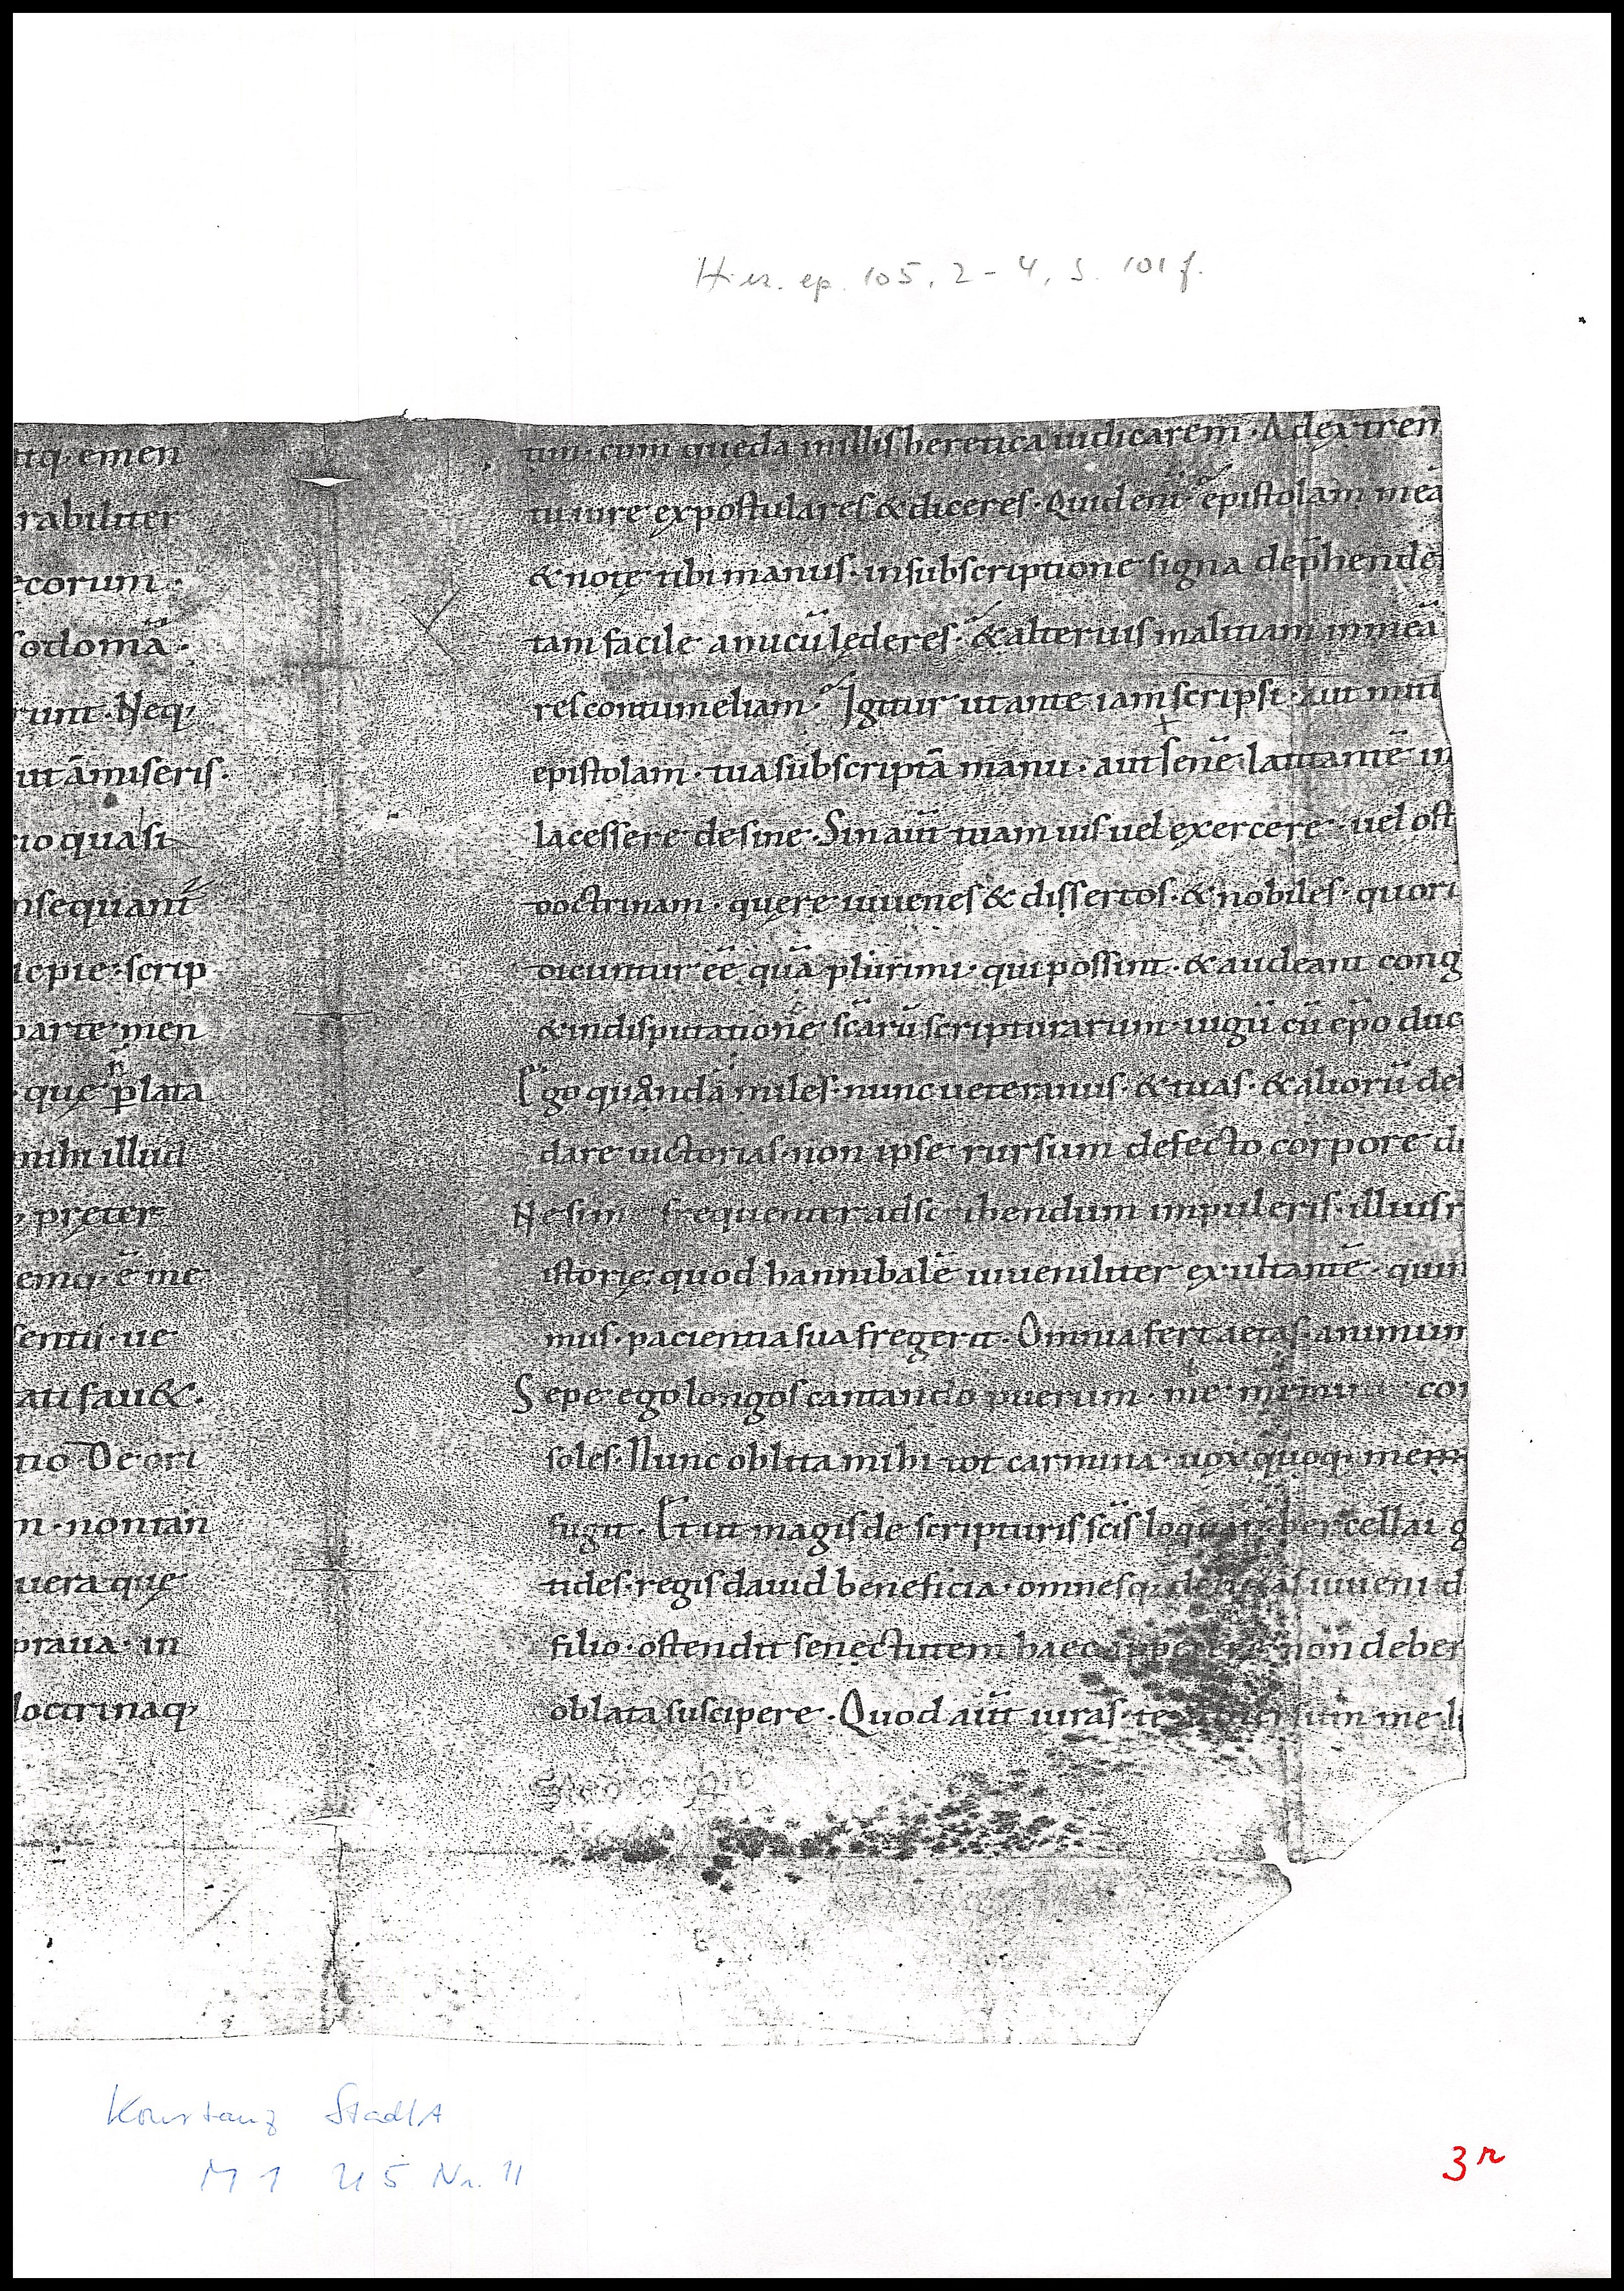 Hier. ep. 105, 2-4, S. 101 f.
atq; emen
rabiliter
ecorum ·
sodomā ·
runt · Neq;
ut āmiseris ·
rio quasi
nsequant̄
icpie · scrip
parte men
que p̄lata
mihi illud
preter
emq; ē me
sentii · ue
ati fau& ·
tio De ori
n · non tan
uera que
praua · in
doctrinaq;
tim · cum quedā in illis heretica iudicarem · Ad extrem
tu iure expostulares & diceres · Quid eni · epistolam meā
& note tibi manus · in subscriptione signa dep̄hende
tam facile amicū lederes · & alterius malitiam in meā
res contumeliam · Igitur ut ante iam scripsi · aut mitt
epistolam · tua subscriptā manu · aut senē latitantē in
lacessere desine · Sin aūt tuam uis uel exercere · uel ost
doctrinam · quere iuuenes & dissertos · & nobiles · quor
dicuntur eē quā plurimi · qui possint · & audeant cong
& in disputatione scārū scripturarum · iugū cū ep̄o duc
Ego quondā miles · nunc ueteranus · & tuas · & aliorū de
dare uictorias · non ipse rursum defecto corpore di
Ne si me frequenter ad scribendum impuleris · illius r
istorie · quod hannibalē iuueniliter exultantē · quin
mus · pacientia sua fregerit · Omnia fert aetas · animum
Sepe ego longos cantando puerum · me memini con
soles · Nunc oblita mihi tot carmina · uox quoq; mem
fugit · Et ut magis de scripturis scīs loquar · bercellai g
tides · regis dauid beneficia · omnesq; delicias iuueni d
filio · ostendit senectutem haec appetere non deber
oblata suscipere · Quod aūt iuras · te aduersum me li
Konstanz StadtA
M 1 U 5 Nr. 11
3r